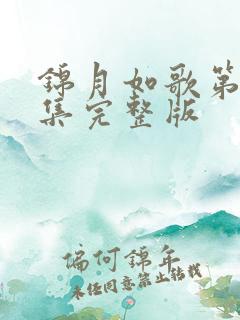 锦月如歌第
集完整版
偏何锦年
未经同意禁止转载